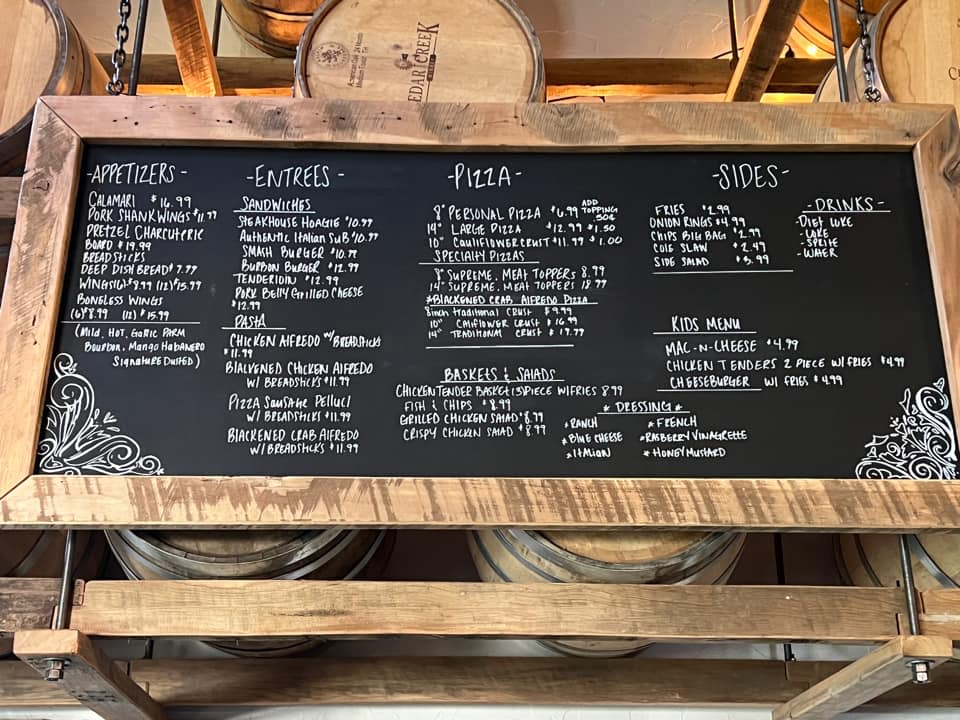 CEDAR CREEK
-APPETIZERS-
CALAMARI $16.99
PORK SHANK WINGS $11.99
PRETZEL CHARCUTERIE
BOARD $19.99
BREADSTICKS
DEEP DISH BREAD $7.99
WINGS (6) $8.99 (12) $15.99
BONELESS WINGS
(6) $8.99 (12) $15.99
(Mild, Hot, Garlic Parm
Bourbon, Mango Habanero
Signature Dusted)
-ENTREES-
SANDWICHES
STEAKHOUSE HOAGIE $10.99
AUTHENTIC ITALIAN SUB $10.99
SMASH BURGER $10.99
BURBON BURGER $12.99
TENDERIOIN $12.99
PORK BELLY GRILLED CHEESE
$12.99
PASTA
CHICKEN ALFREDO W/BREADSTICKS
$11.99
BLALKENED CHICKEN ALFREDO
W/ BREADSTICKS $11.99
PIZZA SAUSAGE PELLUCI
W/ BREADSTICKS $11.99
BLACKENED CRAB ALFREDO
W/ BREADSTICKS $11.99
-PIZZA-
8" PERSONAL PIZZA $6.99 ADD TOPPING 50¢
14" LARGE PIZZA $12.99 $1.50
10" CAULIFLOWER CRUST $11.99 $1.00
SPECIALTY PIZZAS
8" SUPREME, MEAT TOPPERS 8.99
14" SUPREME, MEAT TOPPERS 18.99
*BLACKENED CRAB ALFREDO PIZZA
8inch traditional CRUST $9.99
10" CAULIFLOWER CRUST $16.99
14" TRADITIONAL CRUST $19.99
BASKETS & SALADS
CHICKEN TENDER BASKET (3) PIECE W/FRIES 8.99
FISH & CHIPS $8.99
GRILLED CHICKEN SALAD $8.99
CRISPY CHICKEN SALAD $8.99
-SIDES-
FRIES $2.99
ONION RINGS $4.99
CHIPS BIG BAG $2.99
COLE SLAW $2.49
SIDE SALAD $3.99
-DRINKS-
DIET COKE
- COKE
- SPRITE
- WATER
KIDS MENU
MAC-N-CHEESE $4.99
CHICKEN TENDERS 2 PIECE W/FRIES $4.99
CHEESEBURGER W/ FRIES $4.99
* DRESSING *
* RANCH * FRENCH
* BLUE CHEESE * RASBERRY VINAGRETTE
* ITALIAN * HONEY MUSTARD